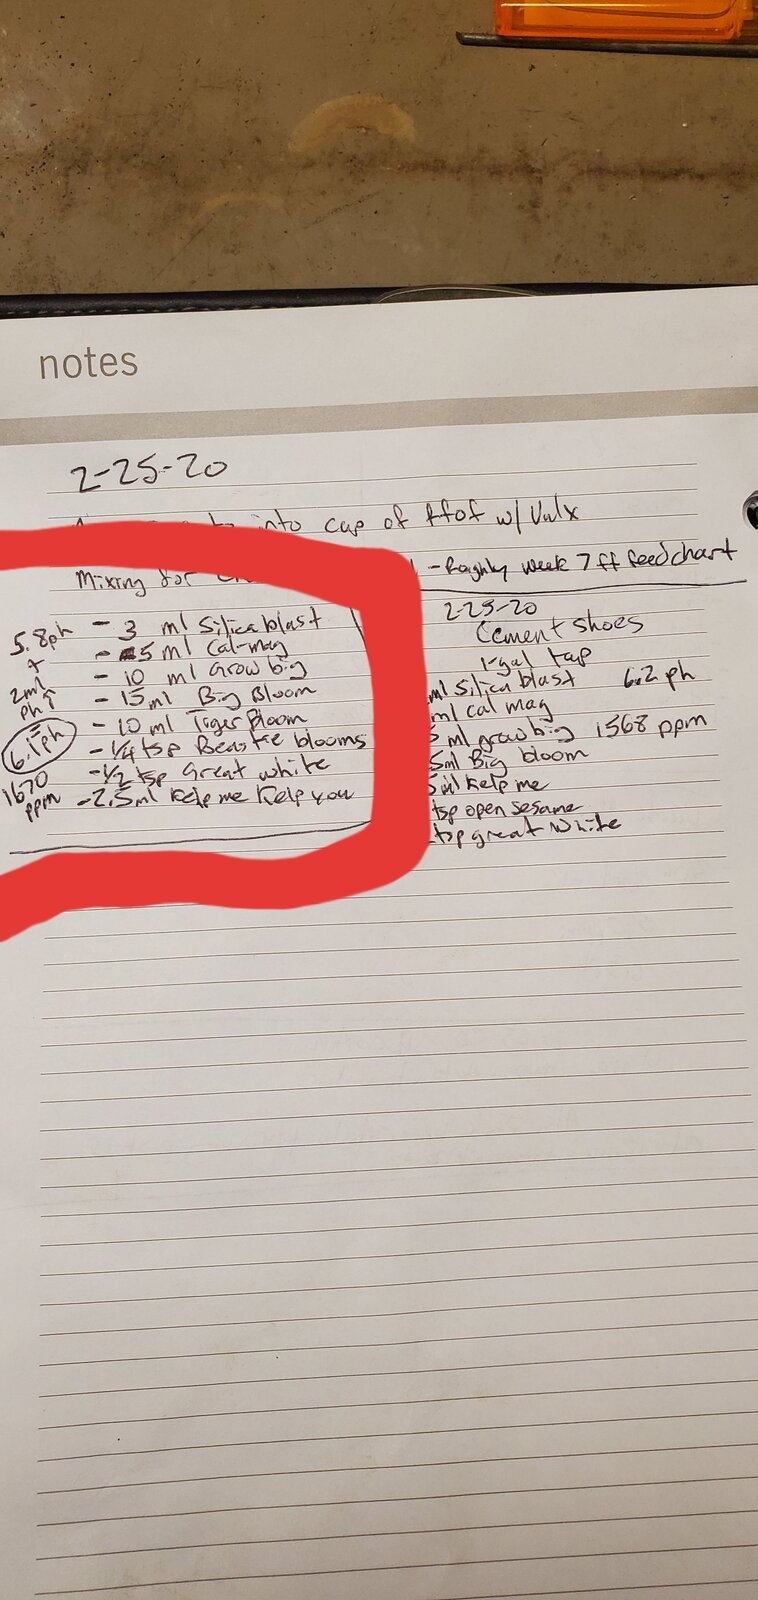 notes
2-25-20
into cup of ffof w/
Mixing for
- Roughly week 7 ff feed chart
5.8ph
+
2ml
ph↑
6.1ph
1670
ppm
- 3 ml Silica blast
- 5 ml Cal-mag
- 10 ml Grow big
- 15ml Big Bloom
- 10 ml Tiger Bloom
- 1/4 tsp Beastie blooms
- 1/2 tsp Great white
- 2.5ml Kelp me Kelp you
2-25-20
Cement shoes
1-gal tap
ml Silica blast 6.2 ph
ml cal mag
5 ml grow big 1568 ppm
5ml Big bloom
5ml Kelp me
tsp open sesame
tsp great white